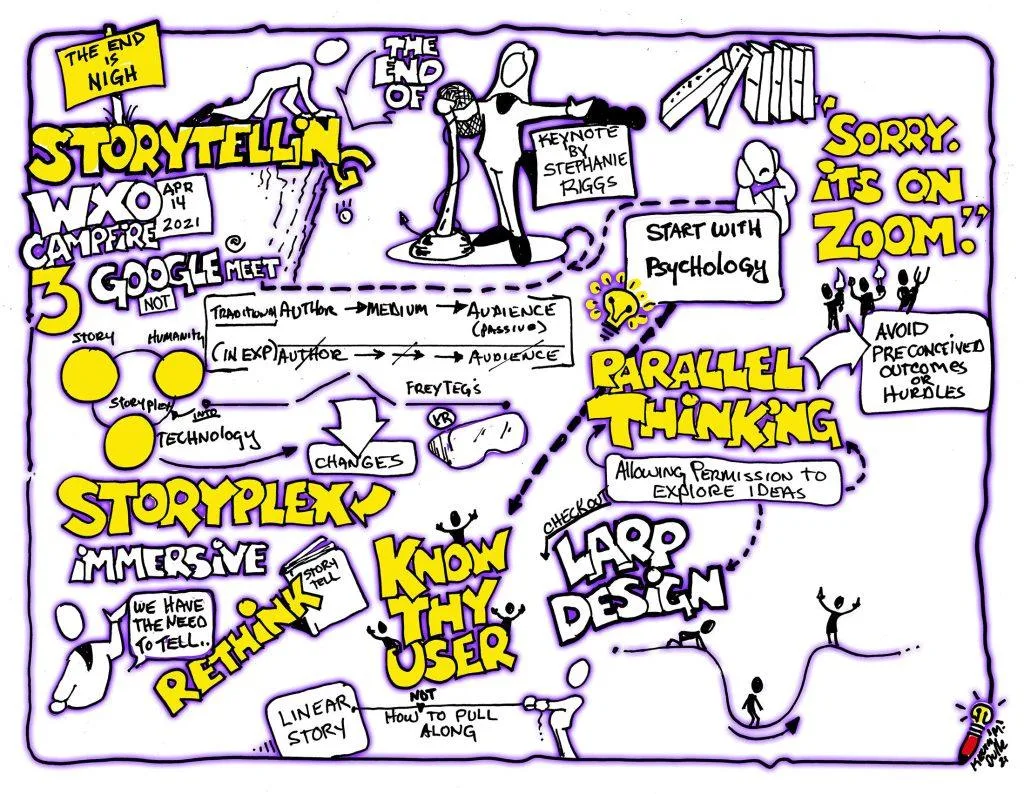 THE END
IS
NIGH
THE
END
OF
STORYTELLIN
WXO
APR
14
2021
CAMPFIRE
3
GOOGLE MEET
NOT
KEYNOTE
BY
STEPHANIE
RIGGS
"SORRY.
iTS ON
ZOOM."
START WITH
PSYCHOLOGY
TRADITIONAL AUTHOR → MEDIUM → AUDIENCE
(PASSIVE)
(IN EXP) AUTHOR → → AUDIENCE
STORY
HUMANITY
STORYPLEX
INTR
TECHNOLOGY
FREYTEG'S
VR
CHANGES
PARALLEL
THINKING
AVOID
PRECONCEIVED
OUTCOMES
OR
HURDLES
ALLOWING PERMISSION TO
EXPLORE IDEAS
STORYPLEX
iMMERSIVE
WE HAVE
THE NEED
TO TELL..
RETHINK
STORY
TELL
KNOW
THY
USER
CHECKOUT
LARP
DESIGN
LINEAR
STORY
NOT
HOW TO PULL
ALONG